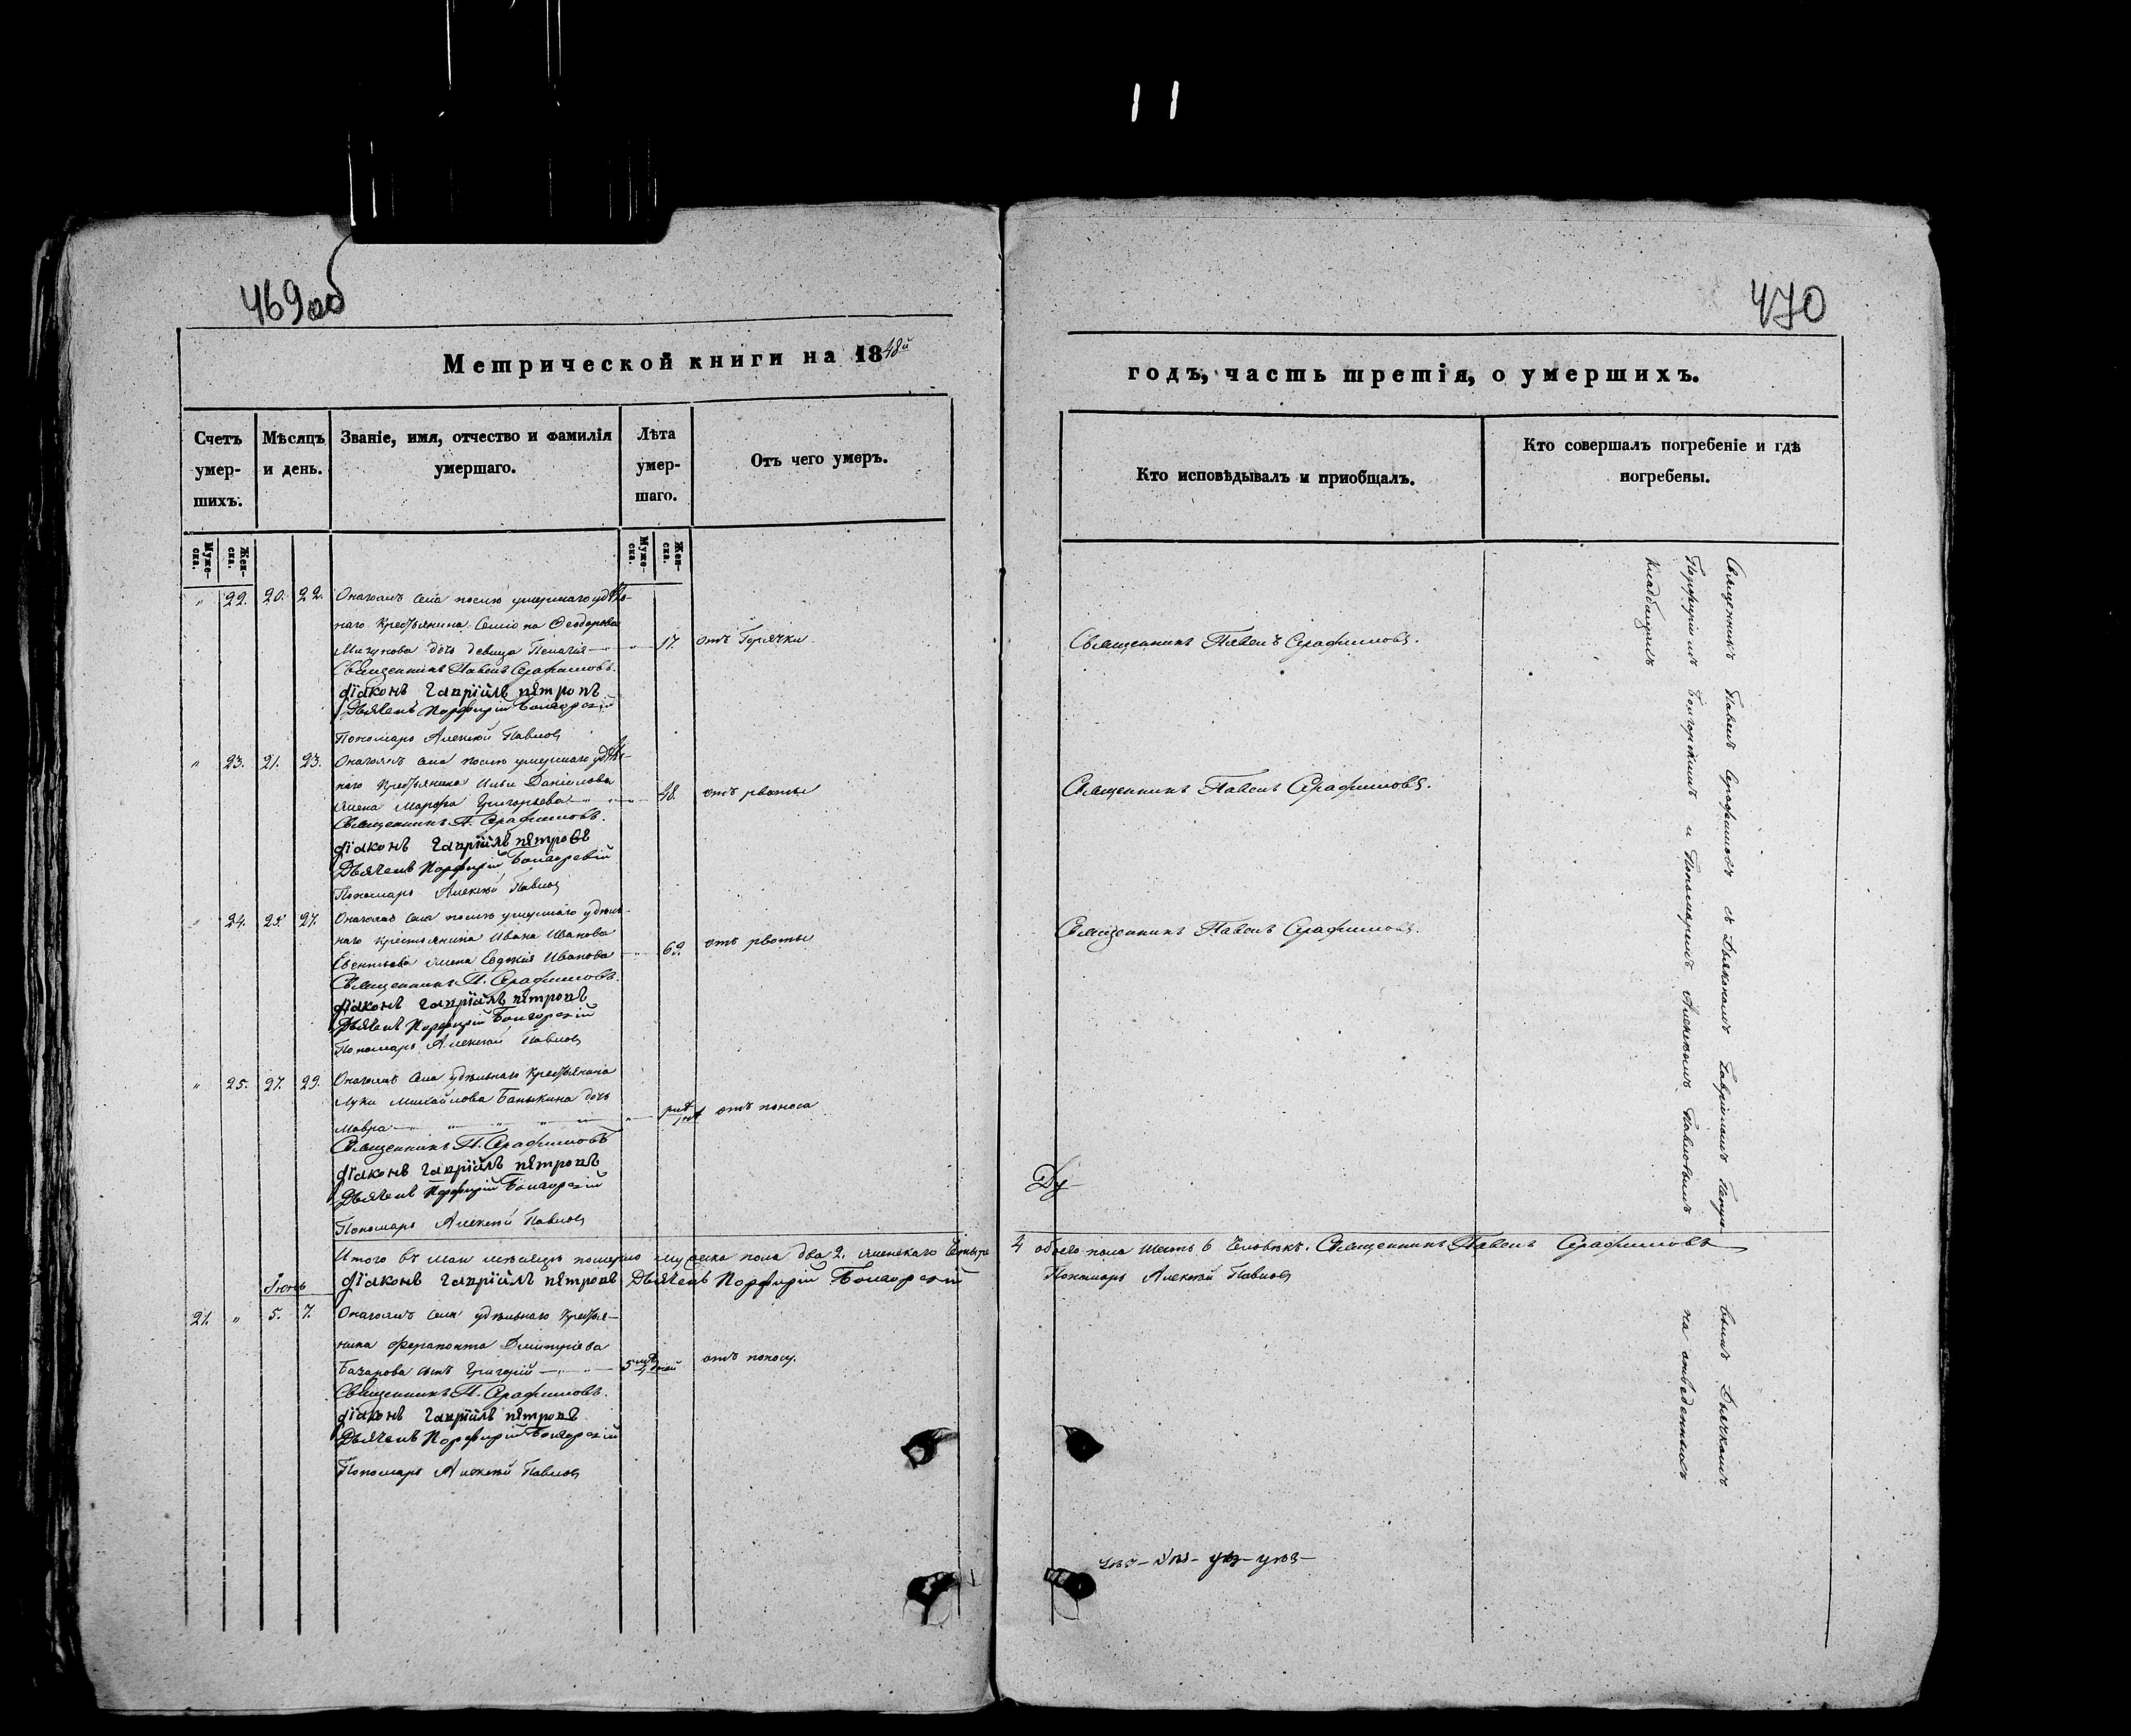 469 об
470
Метрической книги на 1848й
годъ, часть третія, о умершихъ.
Счетъ умер-шихъ.
Мѣсяцъ и день.
Званіе, имя, отчество и фамилія умершаго.
Лѣта умер-шаго.
Отъ чего умеръ.
Кто исповѣдывалъ и приобщалъ.
Кто совершалъ погребеніе и гдѣ погребены.
Муже-ска.
Жен-ска.
Муже-ска.
Жен-ска.
" 22. 20. 22. Онагожъ села послѣ умершаго удѣль-
наго крестьянина Феодорова
дочь девица Пелагія 17. отъ горячки Священникъ Павелъ Серафимовъ.
Священникъ Павелъ Серафимовъ.
діаконъ гавріилъ пѣтровъ
Дьячекъ Порфирій Болгорскій
Пономарь Алексѣй Павловъ
" 23. 21. 23. Онагожъ села послѣ умершаго удѣль-
наго крестьянина Ильи Даніилова
жена Марфа Григорьева 48. отъ рвоты Священникъ Павелъ Серафимовъ.
Священникъ П. Серафимовъ.
діаконъ гавріилъ пѣтровъ
Дьячекъ Порфирій Болгорскій
Пономарь Алексѣй Павловъ
" 24. 25. 27. Онагожъ села послѣ умершаго удѣль-
наго крестьянина Ивана Иванова
жена Иванова 69. отъ рвоты Священникъ Павелъ Серафимовъ.
Священникъ П. Серафимовъ.
діаконъ гавріилъ пѣтровъ
Дьячекъ Порфирій Болгорскій
Пономарь Алексѣй Павловъ
" 25. 27. 29. Онагожъ села удѣльнаго крестьянина
Луки Михайлова Баныкина дочь
Мавра отъ поноса
Священникъ П. Серафимовъ
діаконъ гавріилъ пѣтровъ
Дьячекъ Порфирій Болгорскій
Пономарь Алексѣй Павловъ
Итого въ маи мѣсяцѣ померло мужеска пола два 2. женскаго четыре 4 обоего пола шесть 6 человѣкъ. Священникъ Павелъ Серафимовъ
діаконъ гавріилъ пѣтровъ Дьячекъ Порфирій Болгорскій Пономарь Алексѣй Павловъ
Іюнь
21. " 5. 7. Онагожъ села удѣльнаго крестья-
нина Ферапонта Димитріева
Базарова сынъ Григорій 5 отъ поносу.
Священникъ П. Серафимовъ.
діаконъ гавріилъ пѣтровъ
Дьячекъ Порфирій Болгорскій
Пономарь Алексѣй Павловъ
Священникъ Павелъ Серафимовъ съ Дьякономъ Гавріиломъ Петро-вымъ Дьячкомъ
Порфиріемъ Болгорскимъ и Пономаремъ Алексѣемъ Павловымъ на отведенномъ
Кладбищѣ